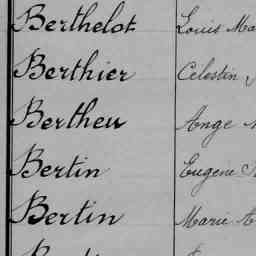 Berthelot Louis Ma
Berthier Celestin
Bertheu Ange
Bertin Eugène
Bertin Marie